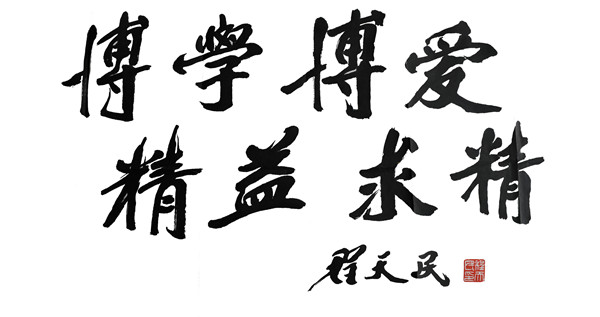 博學博爱
精益求精
程天民